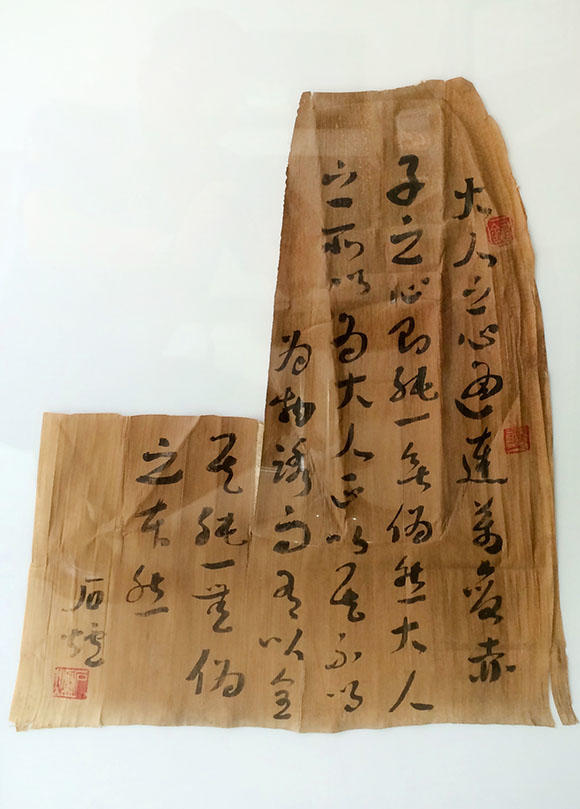 大人之心通達萬變赤
子之心則純一無偽然大人
之所以為大人正以其不
為物誘而有以全
其純一無偽
之本然
石爐